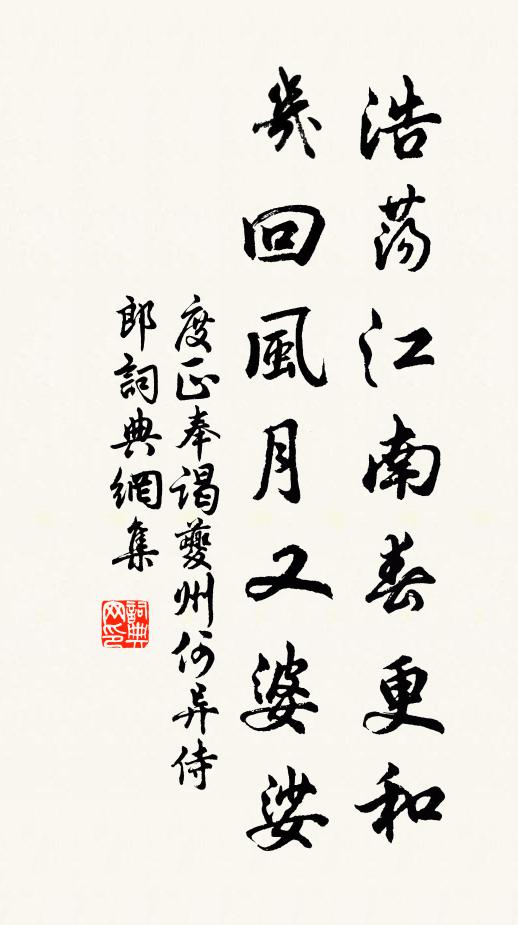 浩荡江南春更和
几回風月又婆娑
度正奉謁夔州何异侍
郎詞典網集
詞典网印